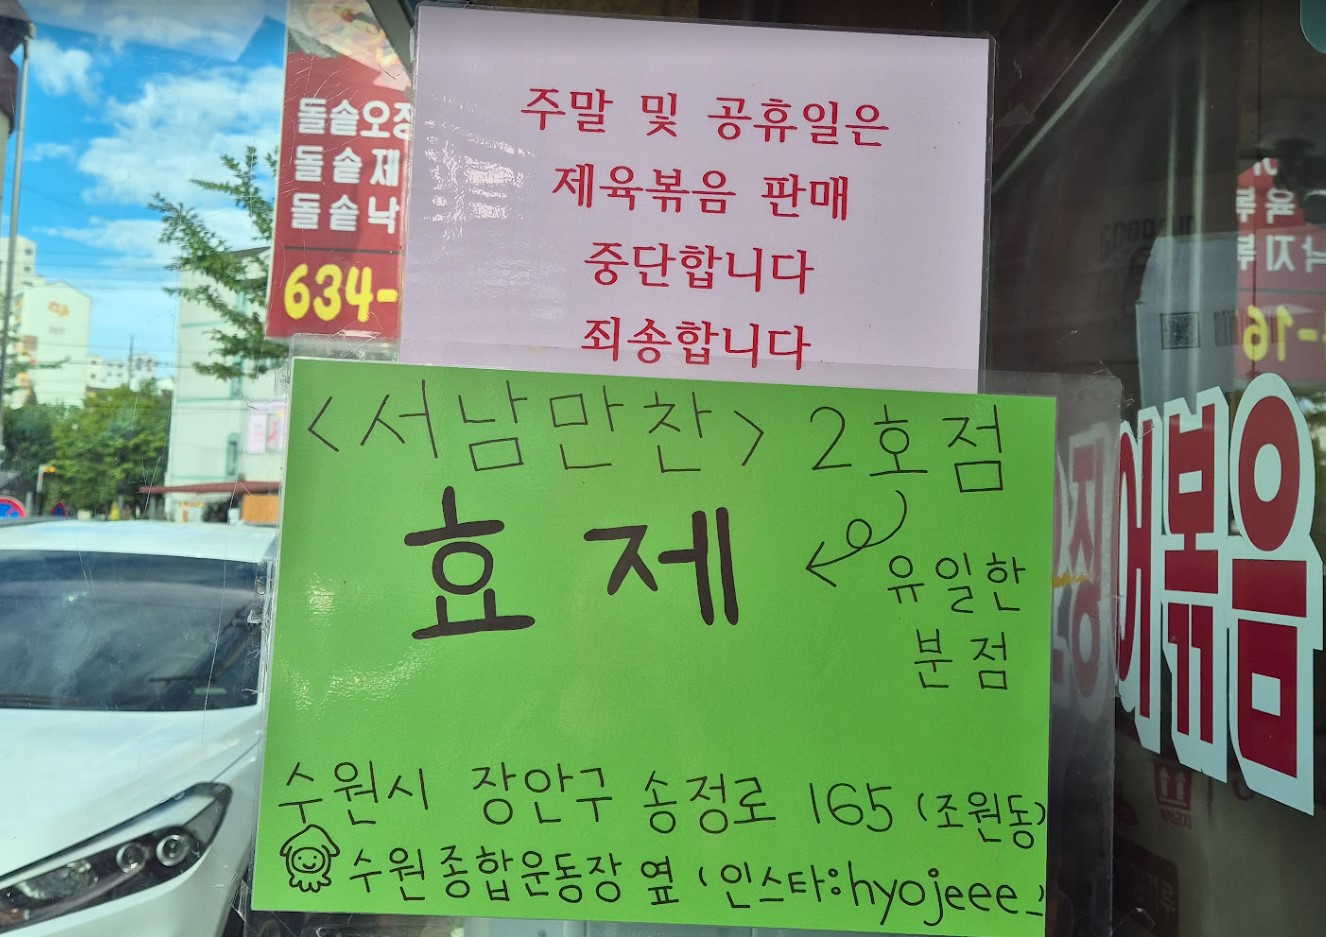 돌솥오징
돌솥제
돌솥낙
634-
주말 및 공휴일은
제육볶음 판매
중단합니다
죄송합니다
<서남만찬> 2호점
효제
유일한
분점
수원시 장안구 송정로 165 (조원동)
수원종합운동장 옆 (인스타:hyojeee_)
징어볶음
-16